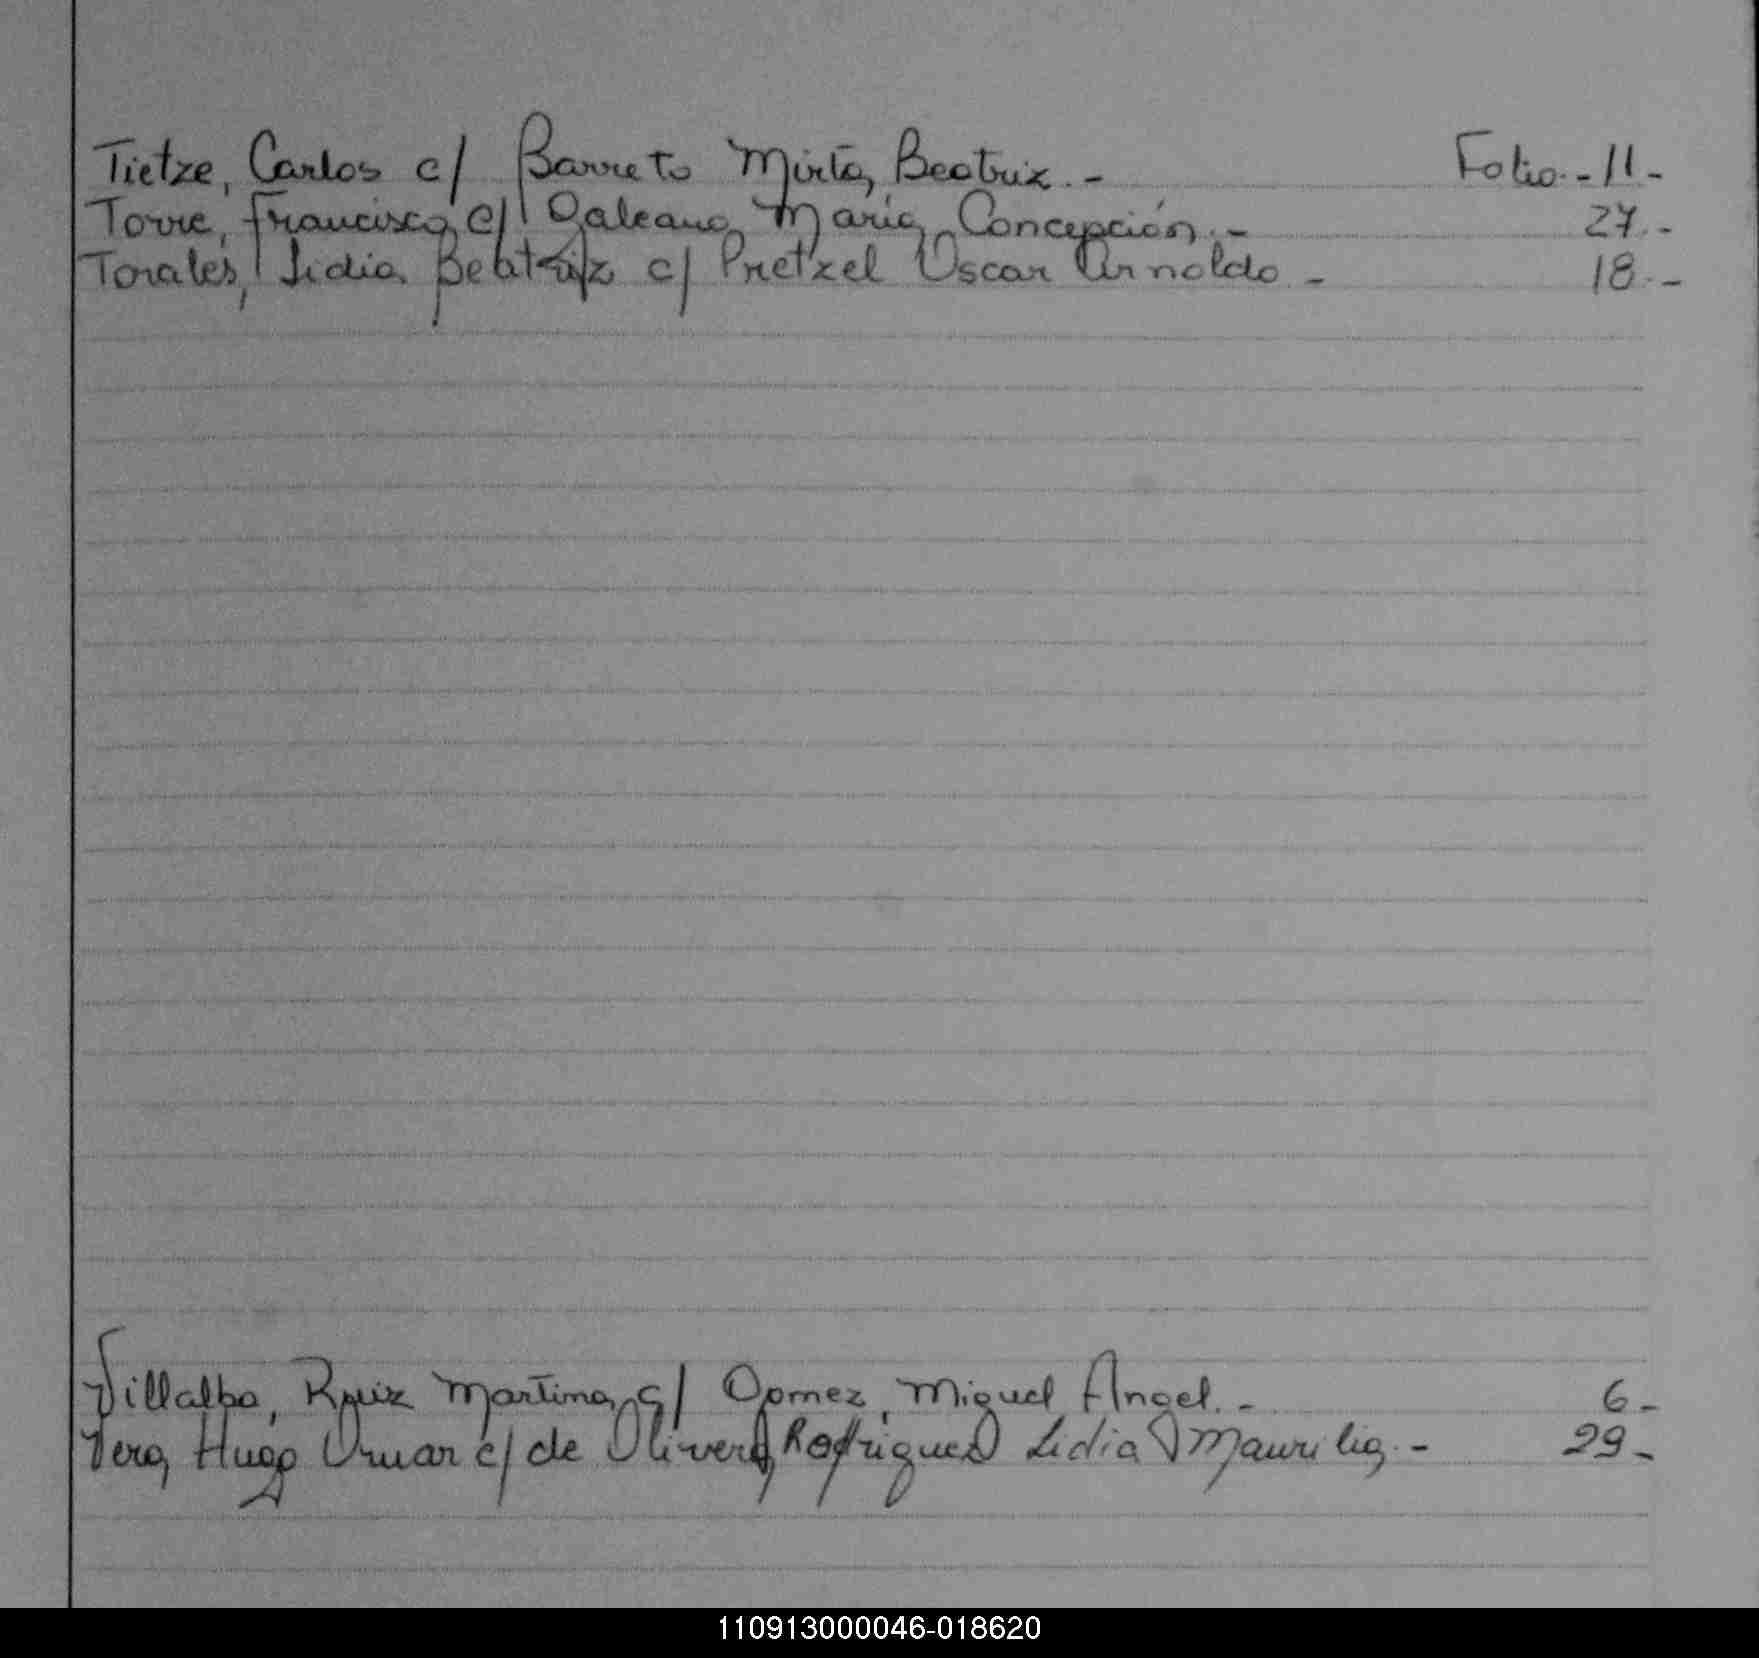 Tietze, Carlos c/ Barreto Mirta, Beatriz.- Folio.-11.-
Torre, Francisco, c/ Galeano, María, Concepción.- 27.-
Torales, Lidia Beatriz c/ Pretzel Oscar Arnoldo.- 18.-
Villalba, Ruiz Martina, c/ Gomez, Miguel Angel.- 6.-
Vera, Hugo Omar c/ de Olivera, Rodrigues Lidia Maurilia.- 29.-
110913000046-018620